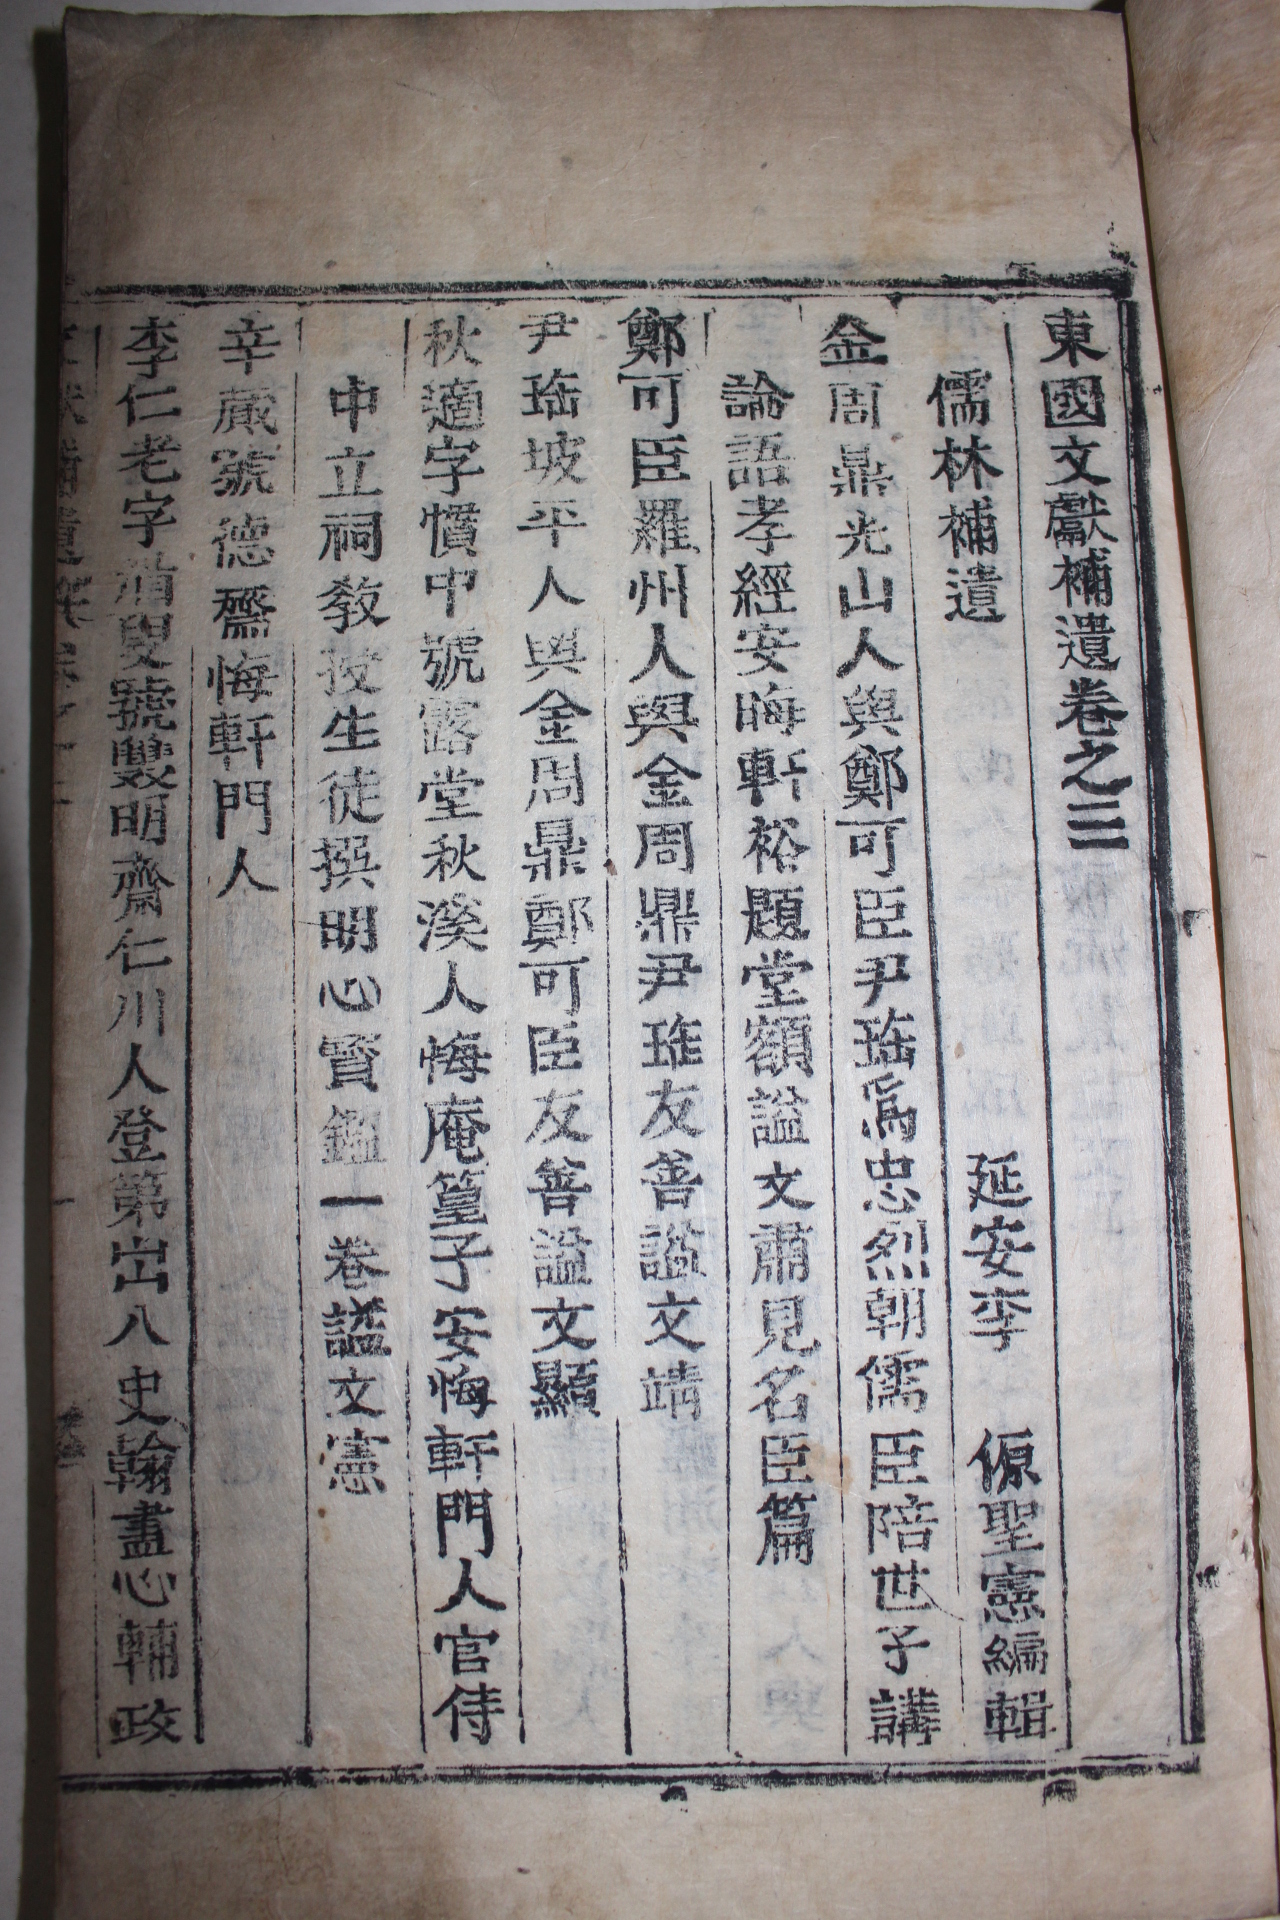 東國文獻補遺卷之三
儒林補遺 延安李 傆聖憲編輯
金周鼎光山人與鄭可臣尹珤爲忠烈朝儒臣陪世子講
論語孝經安晦軒裕題堂額謚文肅見名臣篇
鄭可臣羅州人與金周鼎尹珤友善謚文靖
尹珤坡平人與金周鼎鄭可臣友善謚文顯
秋適字慣中號露堂秋溪人悔庵篁子安悔軒門人官侍
中立祠敎授生徒撰明心賢鑑一卷謚文憲
辛蕆號德齋悔軒門人
李仁老字眉叟號雙明齋仁川人登第出入史翰盡心輔政